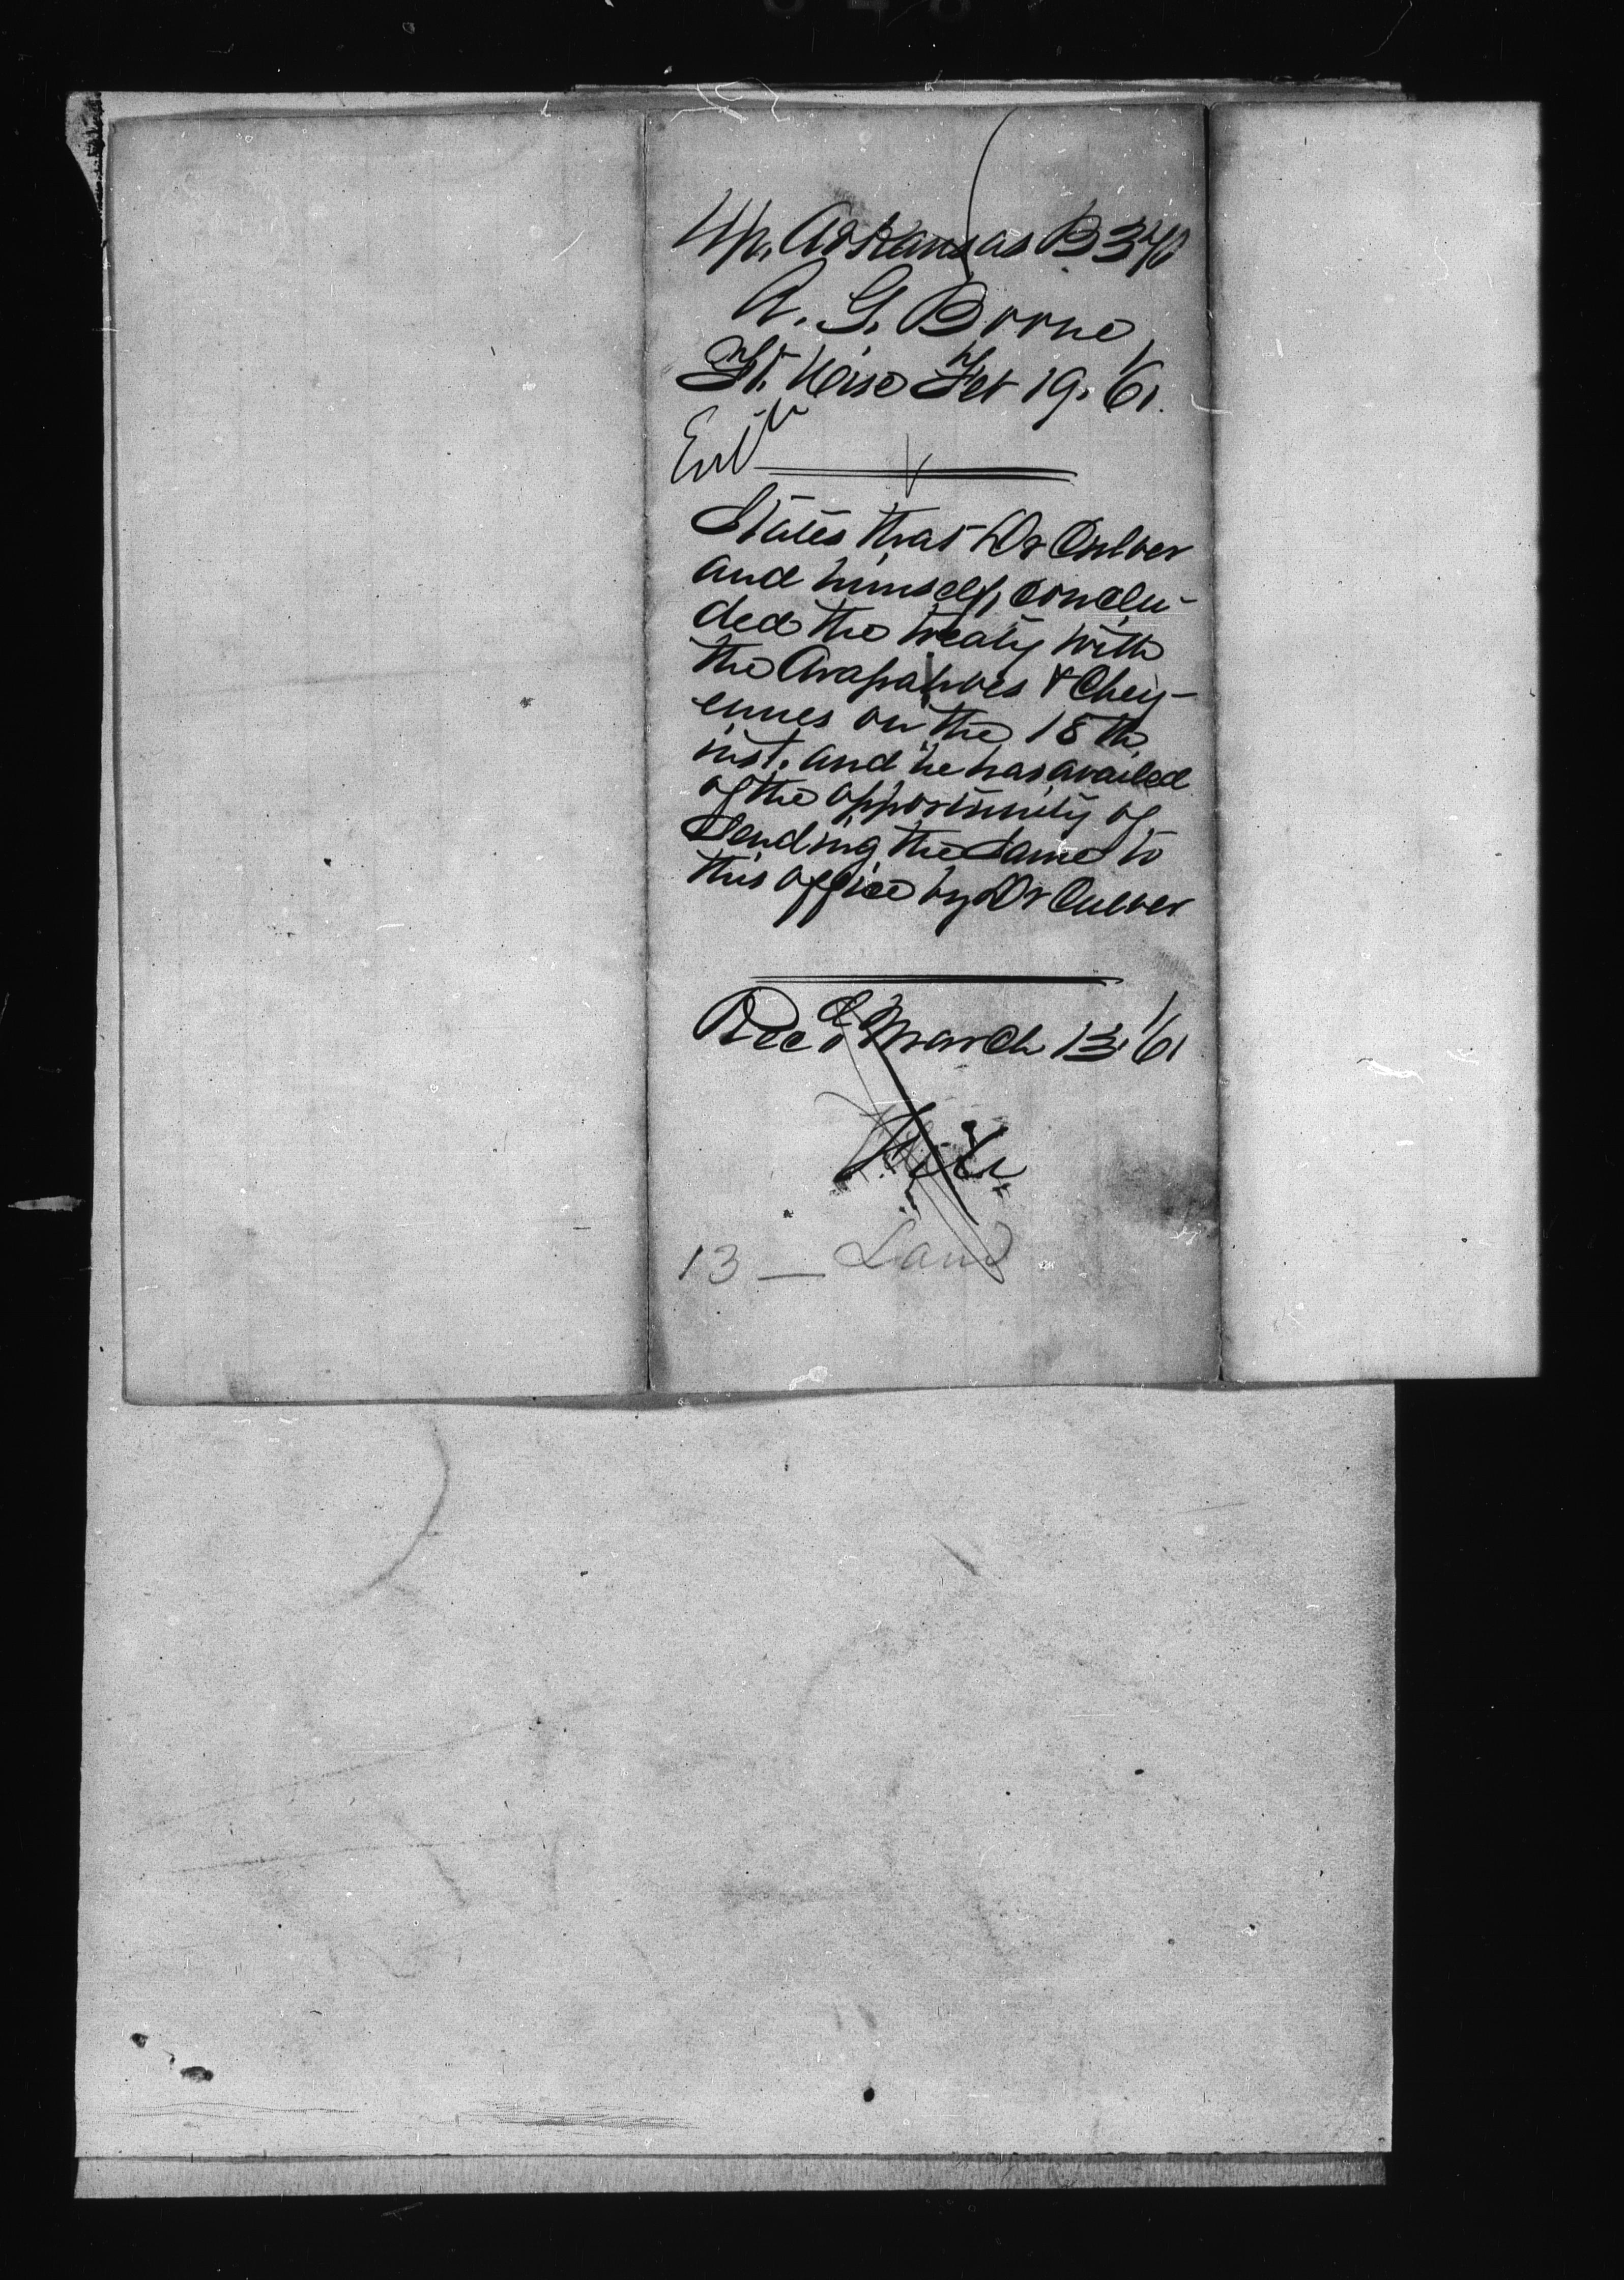 Up. Arkansas B 340
A. G. Boone
Ft. Wise Feb 19. /61.
States that Dr Culver
and himself, conclu-
ded the treaty with
the Arapahoes & Chey-
ennes on the 18th
inst. and he has availed
of the opportunity of
sending the same to
this office by Dr Culver
Recd March 13. /61
File
13 — Land